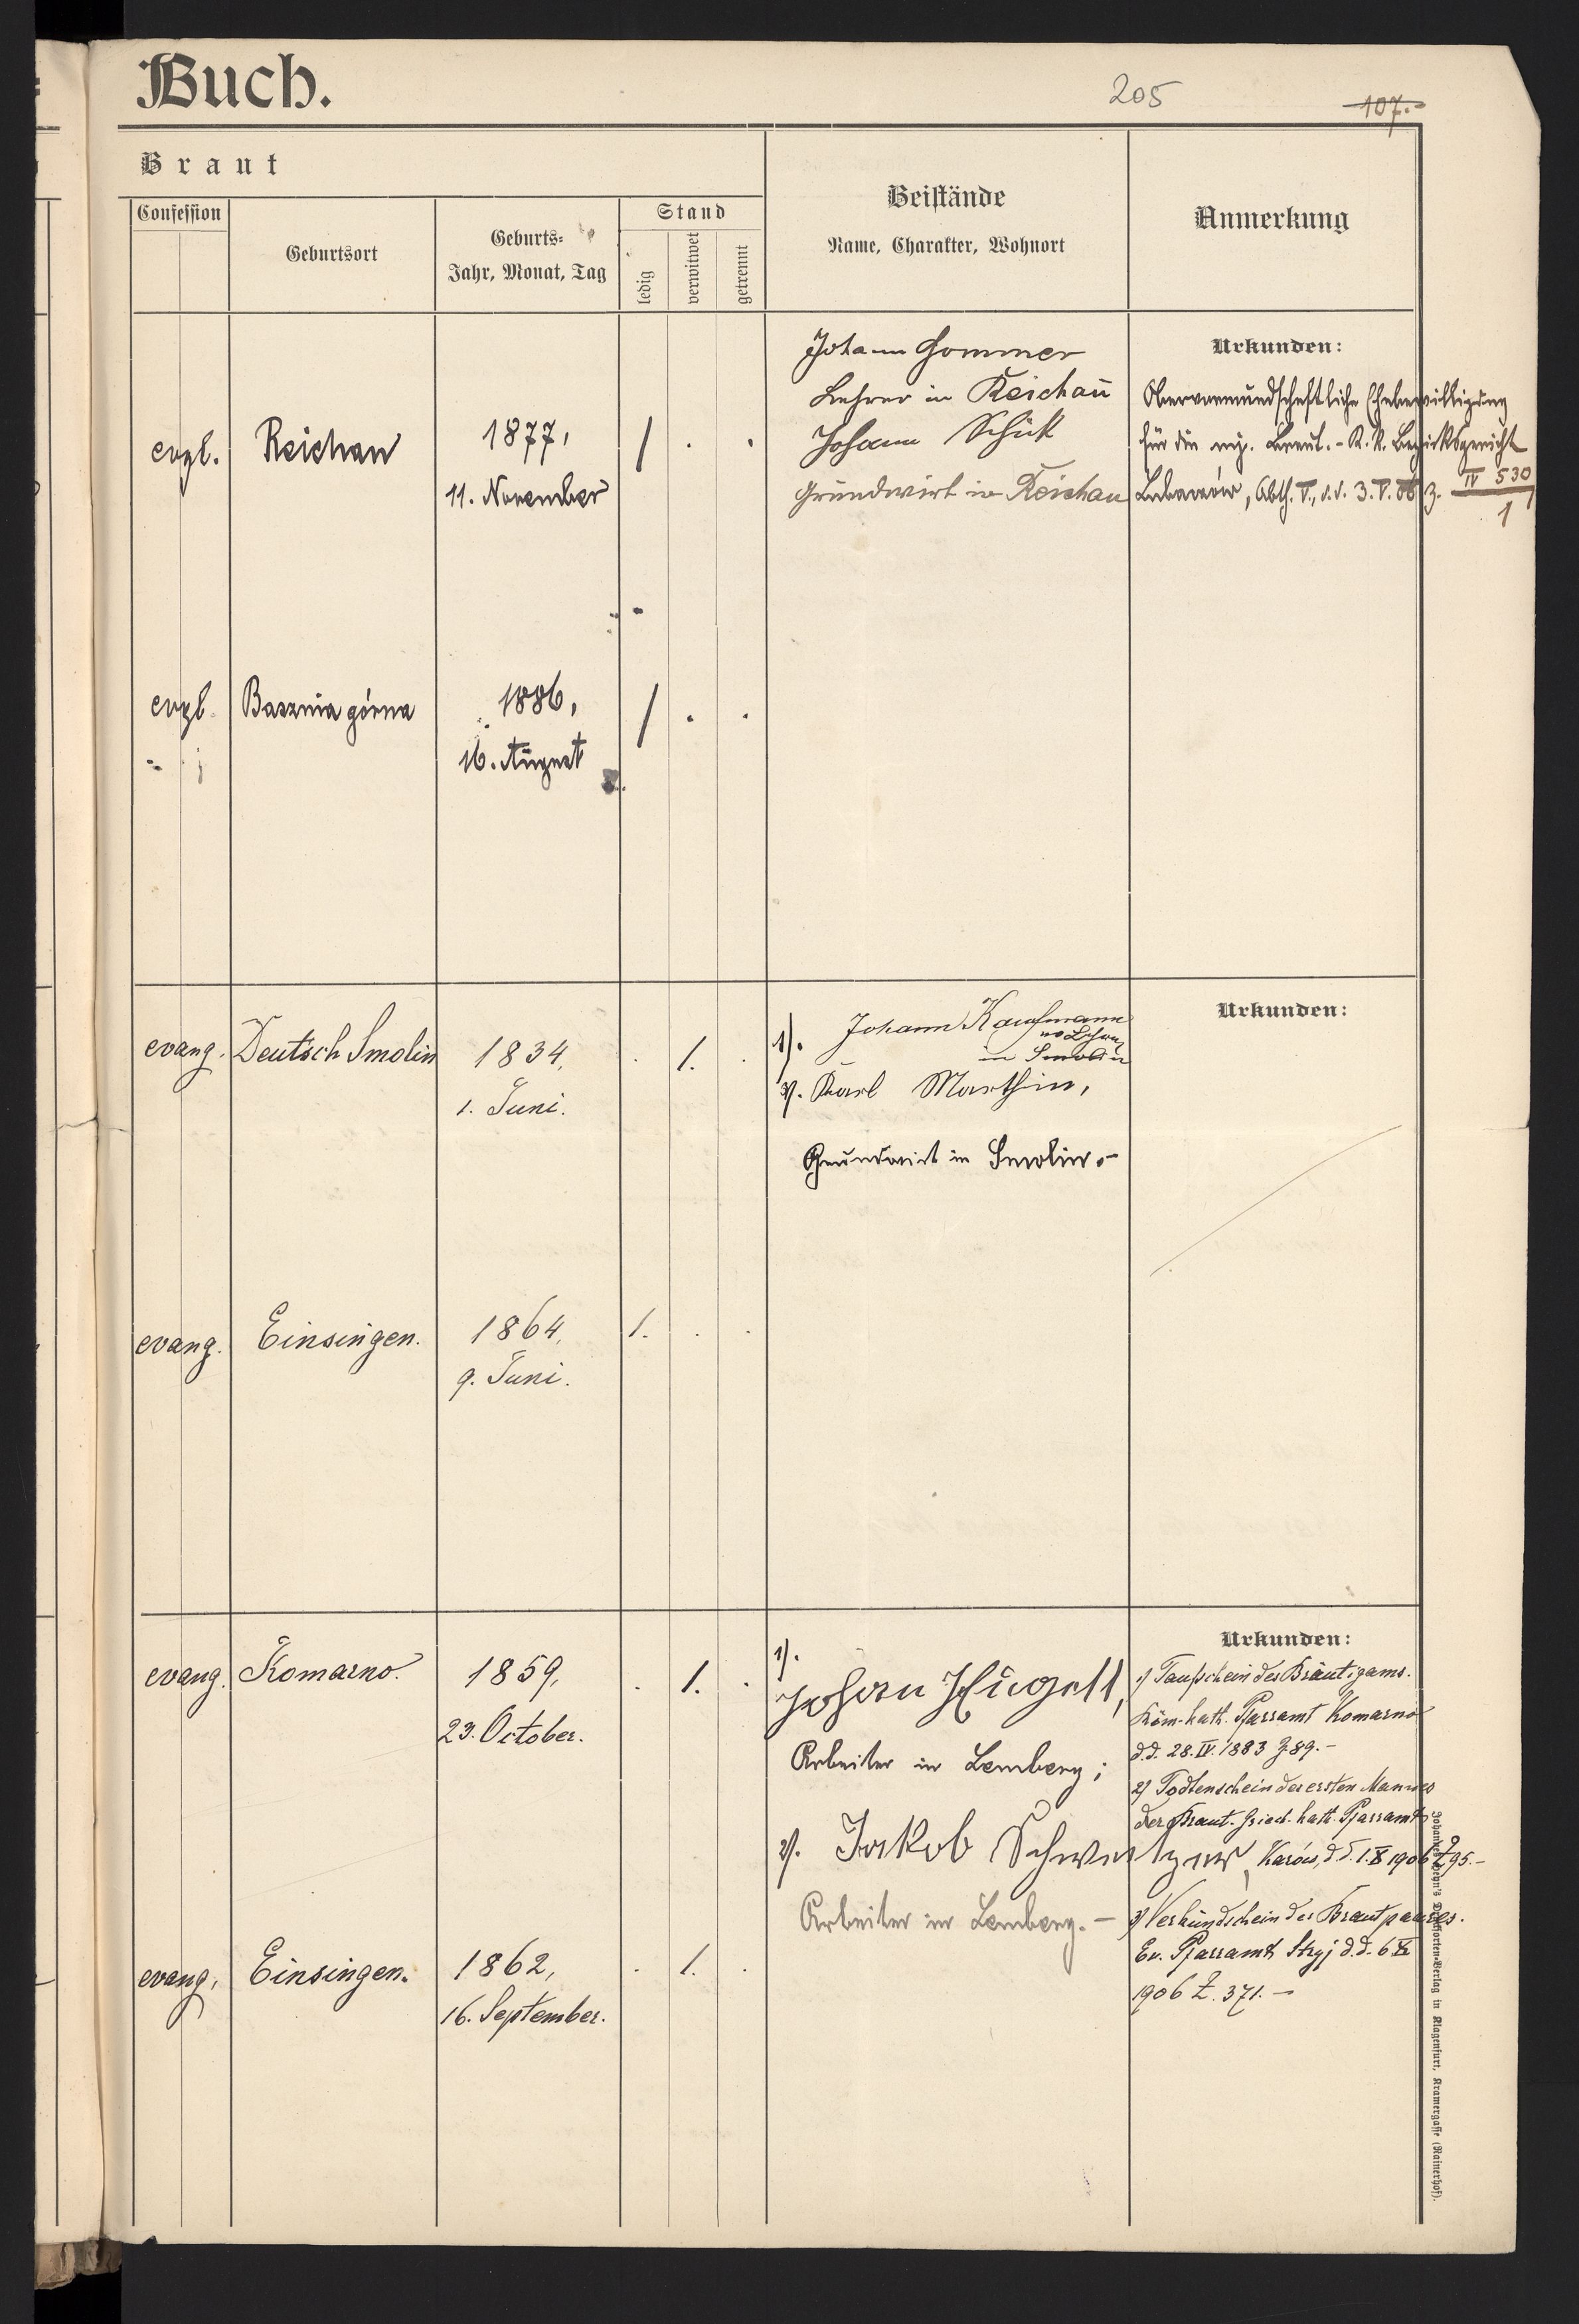 Buch.
205
107.
Braut
Confession
Geburtsort
Geburts-
Jahr, Monat, Tag
Stand
ledig
verwitwet
getrennt
Beistände
Name, Charakter, Wohnort
Anmerkung
Urkunden:
evgl.
Reichau
1877,
11. November
/ . .
Johann Sommer
Lehrer in Reichau
Johann Schick
Grundwirt in Reichau
Obervormundschaftliche Ehebewilligung
für die mj. Braut. - K. k. Bezirksgericht
Lubaczów, Abth. V., d.d. 3. V. 06 Z. IV 530
1
evgl.
Basznia górna
1886,
16. August
/ . .
evang.
Deutsch Smolin
1834,
1. Juni.
. 1. .
1). Johann Kaufmann
in Smolin
2). Karl Marthin,
Grundwirt in Smolin.-
Urkunden:
evang.
Einsingen.
1864,
9. Juni.
1. . .
evang.
Komarno.
1859,
23. October.
. 1. .
1).
Johan Hügell,
Arbeiter in Lemberg;
2). Jakob Schweitzer,
Arbeiter in Lemberg. -
Urkunden:
1) Taufschein des Bräutigams.
Röm.-kath. Pfarramt Komarno
d.d. 28. IV. 1883 Z. 89. -
2) Todtenschein des ersten Mannes
der Braut. Griech. kath. Pfarramt
d.d. 1. X 1906 Z 95. -
3) Verkündschein des Brautpaares.
Ev. Pfarramt Stryj d.d. 6 XI
1906 Z. 371. -
evang.
Einsingen.
1862,
16. September.
. 1. .
Verlag in Klagenfurt, Kramergasse (Rainerhof).